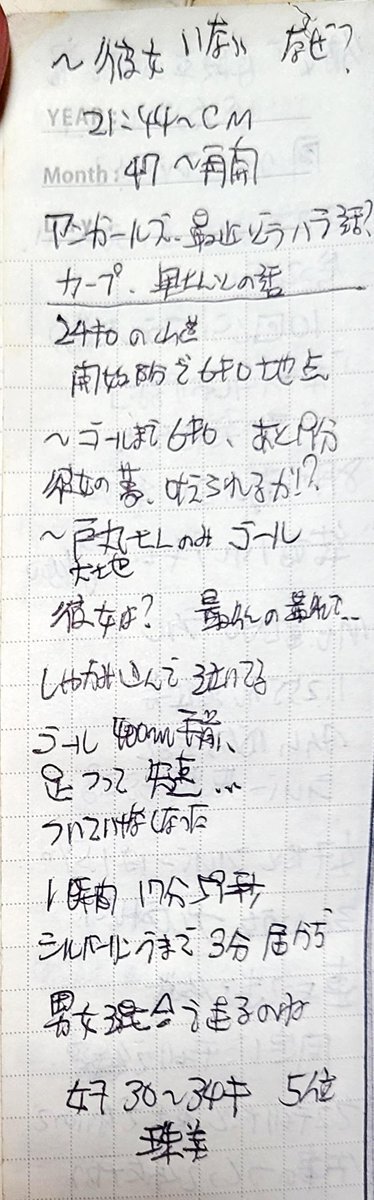 〜彼女いない なぜ?
YEAR:
21:44〜CM
Month:
47〜再開
アンガールズ、最近どうハラ話?
カープ、
の話
24キロの山道
開始8分で6キロ地点
〜ゴールまで6キロ、あと19分
彼女の夢、叶えられるか!?
〜巨丸モレのみ ゴール
大地
彼女は? 最後の最後で…
しゃがみ込んで泣いてる
ゴール400m手前、
足つって失速…
ついていけなくなった
1時間17分59秒
シルバーリングまで3分届かず
男女混合で走るのね
女子30〜34キ 5位
珠美